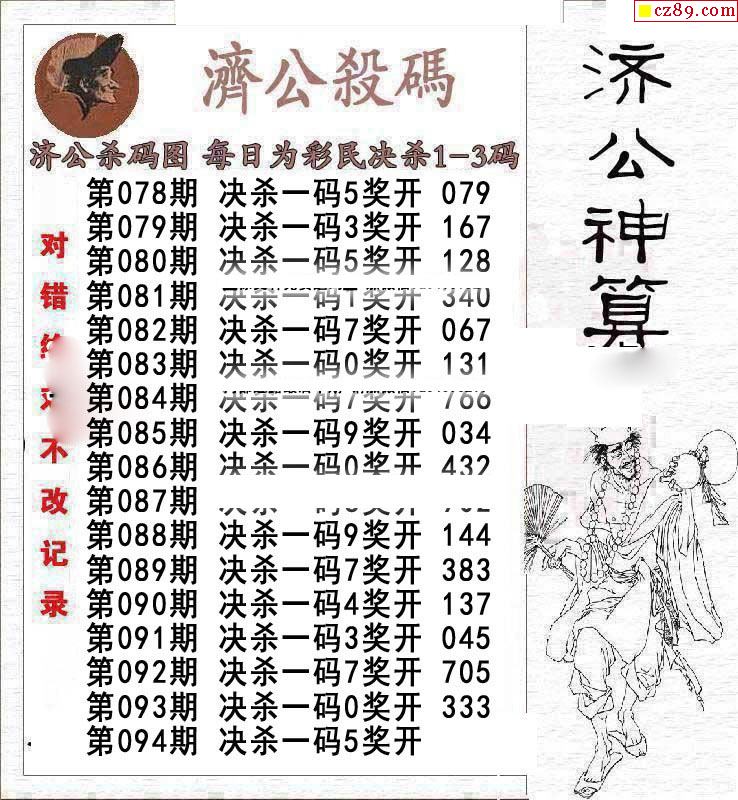 cz89.com
濟公殺碼
济公杀码图 每日为彩民决杀1-3码
第078期 决杀一码5奖开 079
第079期 决杀一码3奖开 167
第080期 决杀一码5奖开 128
第081期 决杀一码1奖开 340
第082期 决杀一码7奖开 067
第083期 决杀一码0奖开 131
第084期 决杀一码7奖开 766
第085期 决杀一码9奖开 034
第086期 决杀一码0奖开 432
第087期
第088期 决杀一码9奖开 144
第089期 决杀一码7奖开 383
第090期 决杀一码4奖开 137
第091期 决杀一码3奖开 045
第092期 决杀一码7奖开 705
第093期 决杀一码0奖开 333
第094期 决杀一码5奖开
对错 不改记录
济公神算